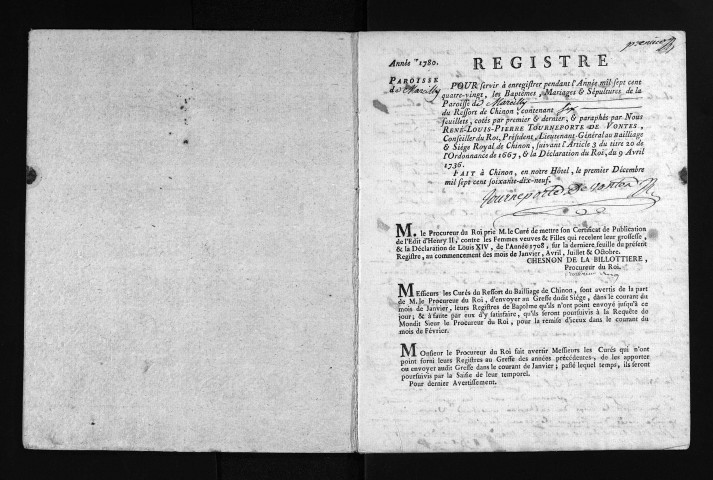 premier
Année 1780.
REGISTRE
PAROISSE
de Marcilly
POUR servir à enregistrer pendant l'Année mil sept cent
quatre-vingt, les Baptêmes, Mariages & Sépultures de la
Paroisse de Marcilly
du Ressort de Chinon; contenant six
feuillets, cotés par premier & dernier, & paraphés par Nous
RENÉ-LOUIS-PIERRE TOURNEPORTE DE VONTES,
Conseiller du Roi, Président, Lieutenant-Général au Bailliage
& Siége Royal de Chinon, suivant l'Article 3 du titre 20 de
l'Ordonnance de 1667, & la Déclaration du Roi, du 9 Avril
1736.
FAIT à Chinon, en notre Hôtel, le premier Décembre
mil sept cent soixante-dix-neuf.
Tourneporte De Vontes
M. le Procureur du Roi prie M. le Curé de mettre son Certificat de Publication
de l'Edit d'Henry II, contre les Femmes veuves & Filles qui recelent leur grossesse,
& la Déclaration de Louis XIV, de l'Année 1708, sur la derniere feuille du présent
Registre, au commencement des mois de Janvier, Avril, Juillet & Octobre.
CHESNON DE LA BILLOTTIERE,
Procureur du Roi.
Messieurs les Curés du Ressort du Bailliage de Chinon, sont avertis de la part
de M. le Procureur du Roi, d'envoyer au Greffe dudit Siége, dans le courant du
mois de Janvier, leurs Registres de Baptême qu'ils n'ont point envoyé jusqu'à ce
jour; & à faute par eux d'y satisfaire, qu'ils seront poursuivis à la Requête de
Mondit Sieur le Procureur du Roi, pour la remise d'iceux dans le courant du
mois de Février.
Monsieur le Procureur du Roi fait avertir Messieurs les Curés qui n'ont
point forni leurs Registres au Greffe des années précédentes, de les apporter
ou envoyer audit Greffe dans le courant de Janvier; passé lequel temps, ils seront
poursuivis par la Saisie de leur temporel.
Pour dernier Avertissement.